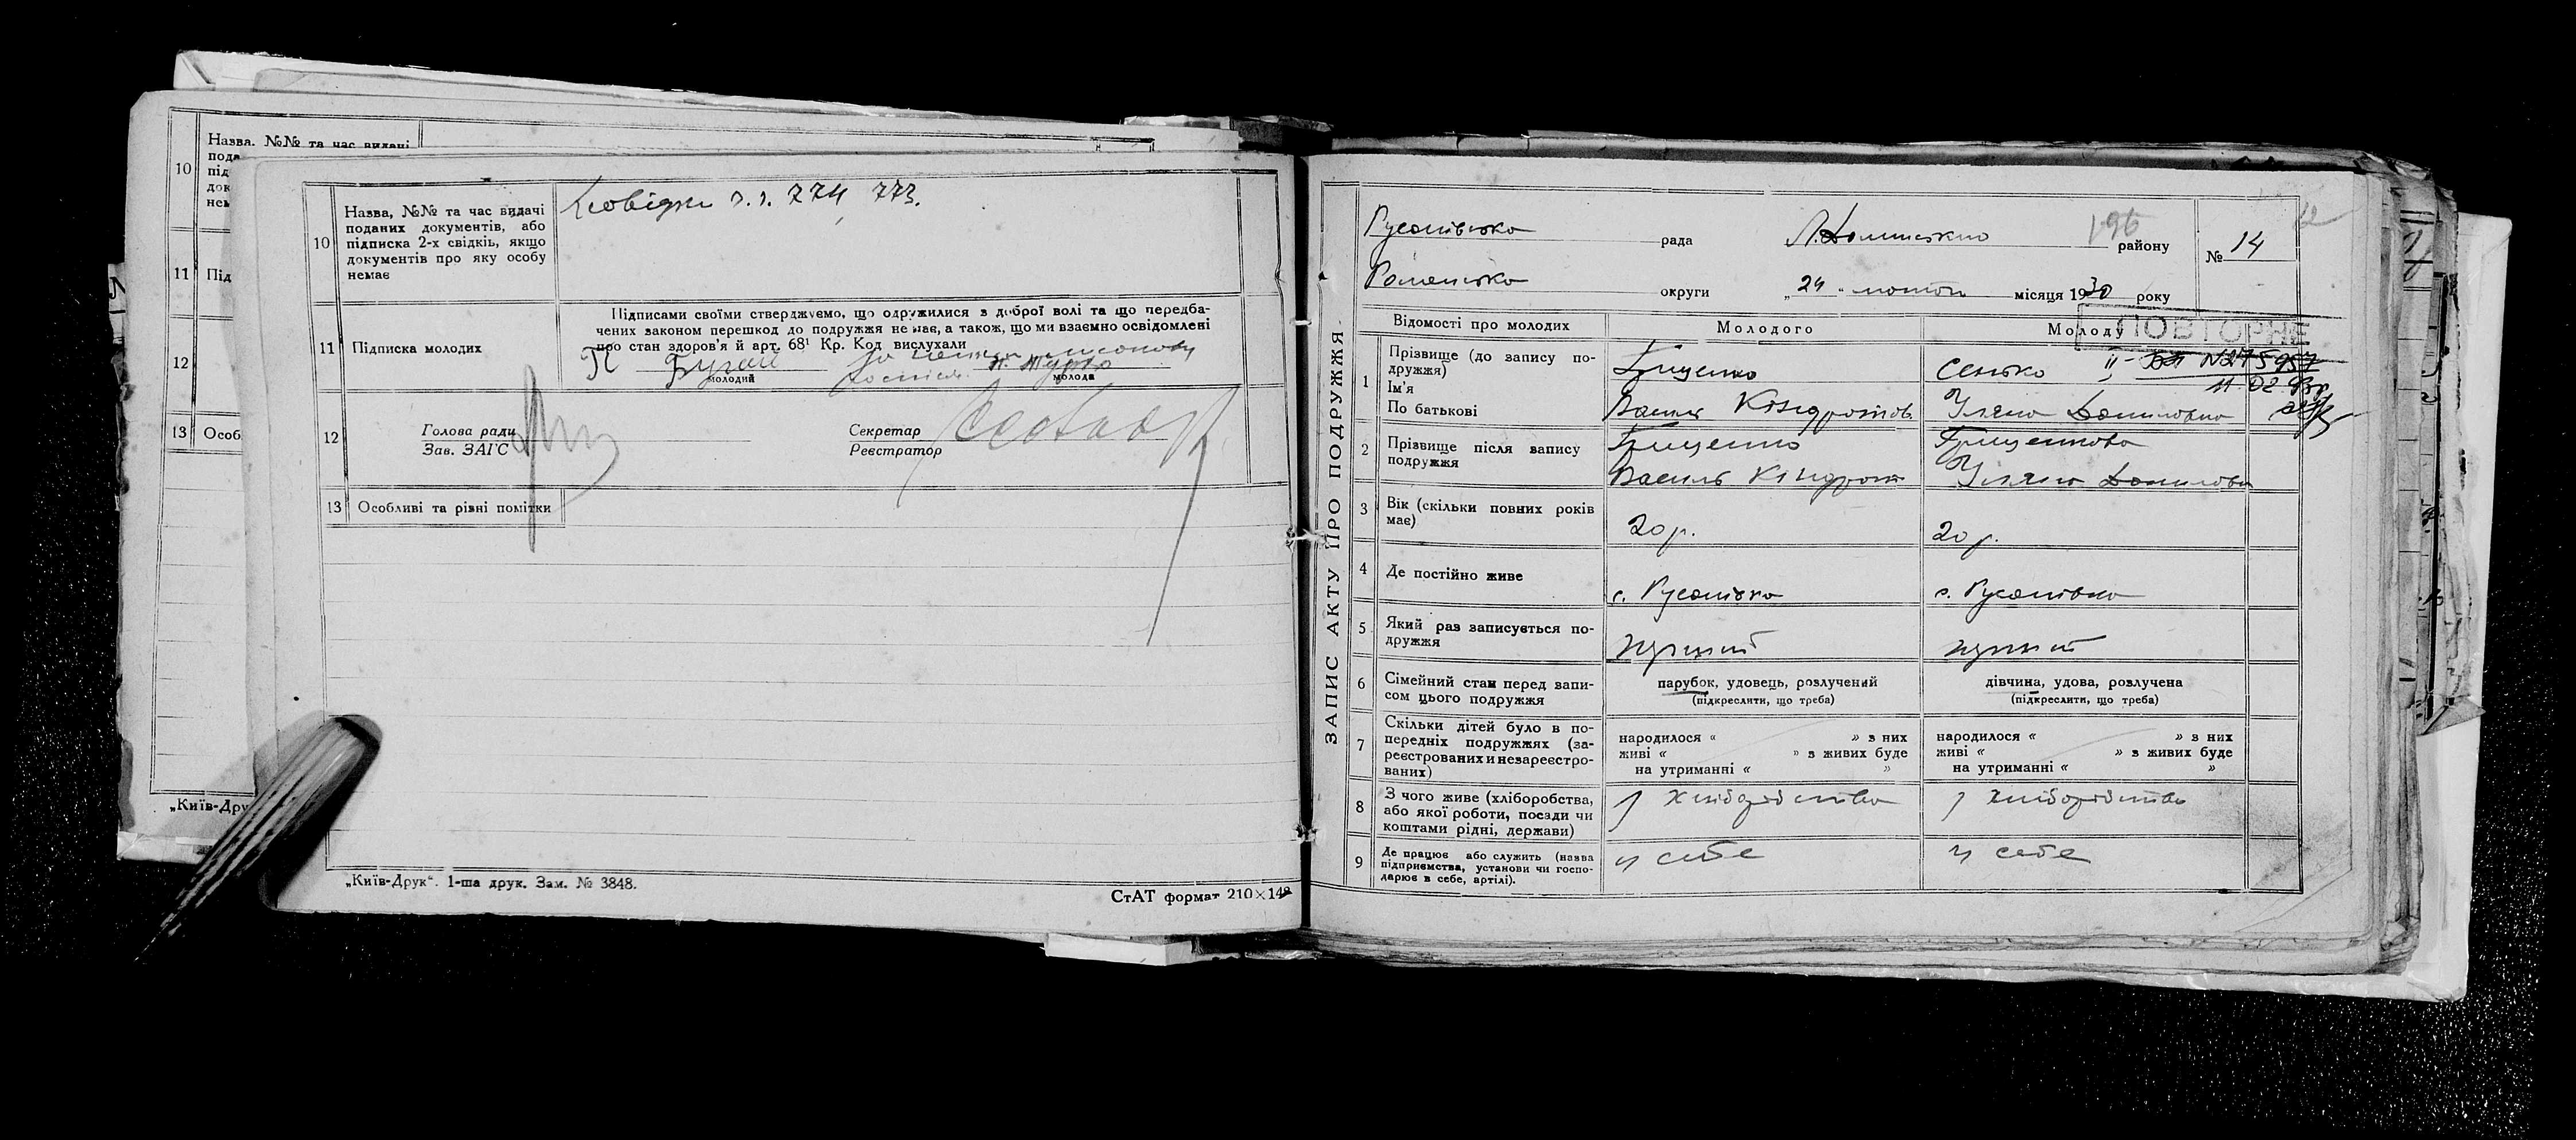 10
Назва. №№ та час видачі
пода
під
док
нем
11 Під
12
13 Особ
„Київ-Дру
10
Назва, №№ та час видачі
поданих документів, або
підписка 2-х свідків, якщо
документів про яку особу
немає
Довідки 774, 773.
11 Підписка молодих
Підписами своїми стверджуємо, що одружилися з доброї волі та що передба-
чених законом перешкод до подружжя не має, а також, що ми взаємно освідомлені
про стан здоров'я й арт. 68¹ Кр. Код вислухали
П Бугай
молодий
молода
12
Голова ради
Зав. ЗАГС
Секретар
Реєстратор
13 Особливі та різні помітки
„Київ-Друк“. 1-ша друк. Зам. № 3848.
СтАТ формат 210×148
ЗАПИС АКТУ ПРО ПОДРУЖЖЯ
Русанівська рада району
196
№ 14
12
Роменська округи „24“ лютого місяця 1930 року
ПОВТОРНЕ
Відомості про молодих Молодого Молоду
1
Прізвище (до запису по-
дружжя)
Ім'я
По батькові
Грищенко
Василь Кіндратов.
Сенько
Уляна Даниловна
II-БП №275957
11-02
2
Прізвище після запису
подружжя
Грищенко
Василь Кіндрат
Грищенкова
Уляна Данилова
3
Вік (скільки повних років
має)
20 р. 20 р.
4 Де постійно живе
с. Русанівка с. Русанівка
5
Який раз записується по-
дружжя
перший перший
6
Сімейний стан перед запи-
сом цього подружжя
парубок, удовець, розлучений
(підкреслити, що треба)
дівчина, удова, розлучена
(підкреслити, що треба)
7
Скільки дітей було в по-
передніх подружжях (за-
реєстрованих и незареєстро-
ваних)
народилося « » з них
живі « » з живих буде
на утриманні « »
народилося « » з них
живі « » з живих буде
на утриманні « »
8
З чого живе (хліборобства,
або якої роботи, посади чи
коштами рідні, держави)
з хліборобства з хліборобства
9
Де працює або служить (назва
підприємства, установи чи госпо-
дарює в себе, артілі).
у себе у себе